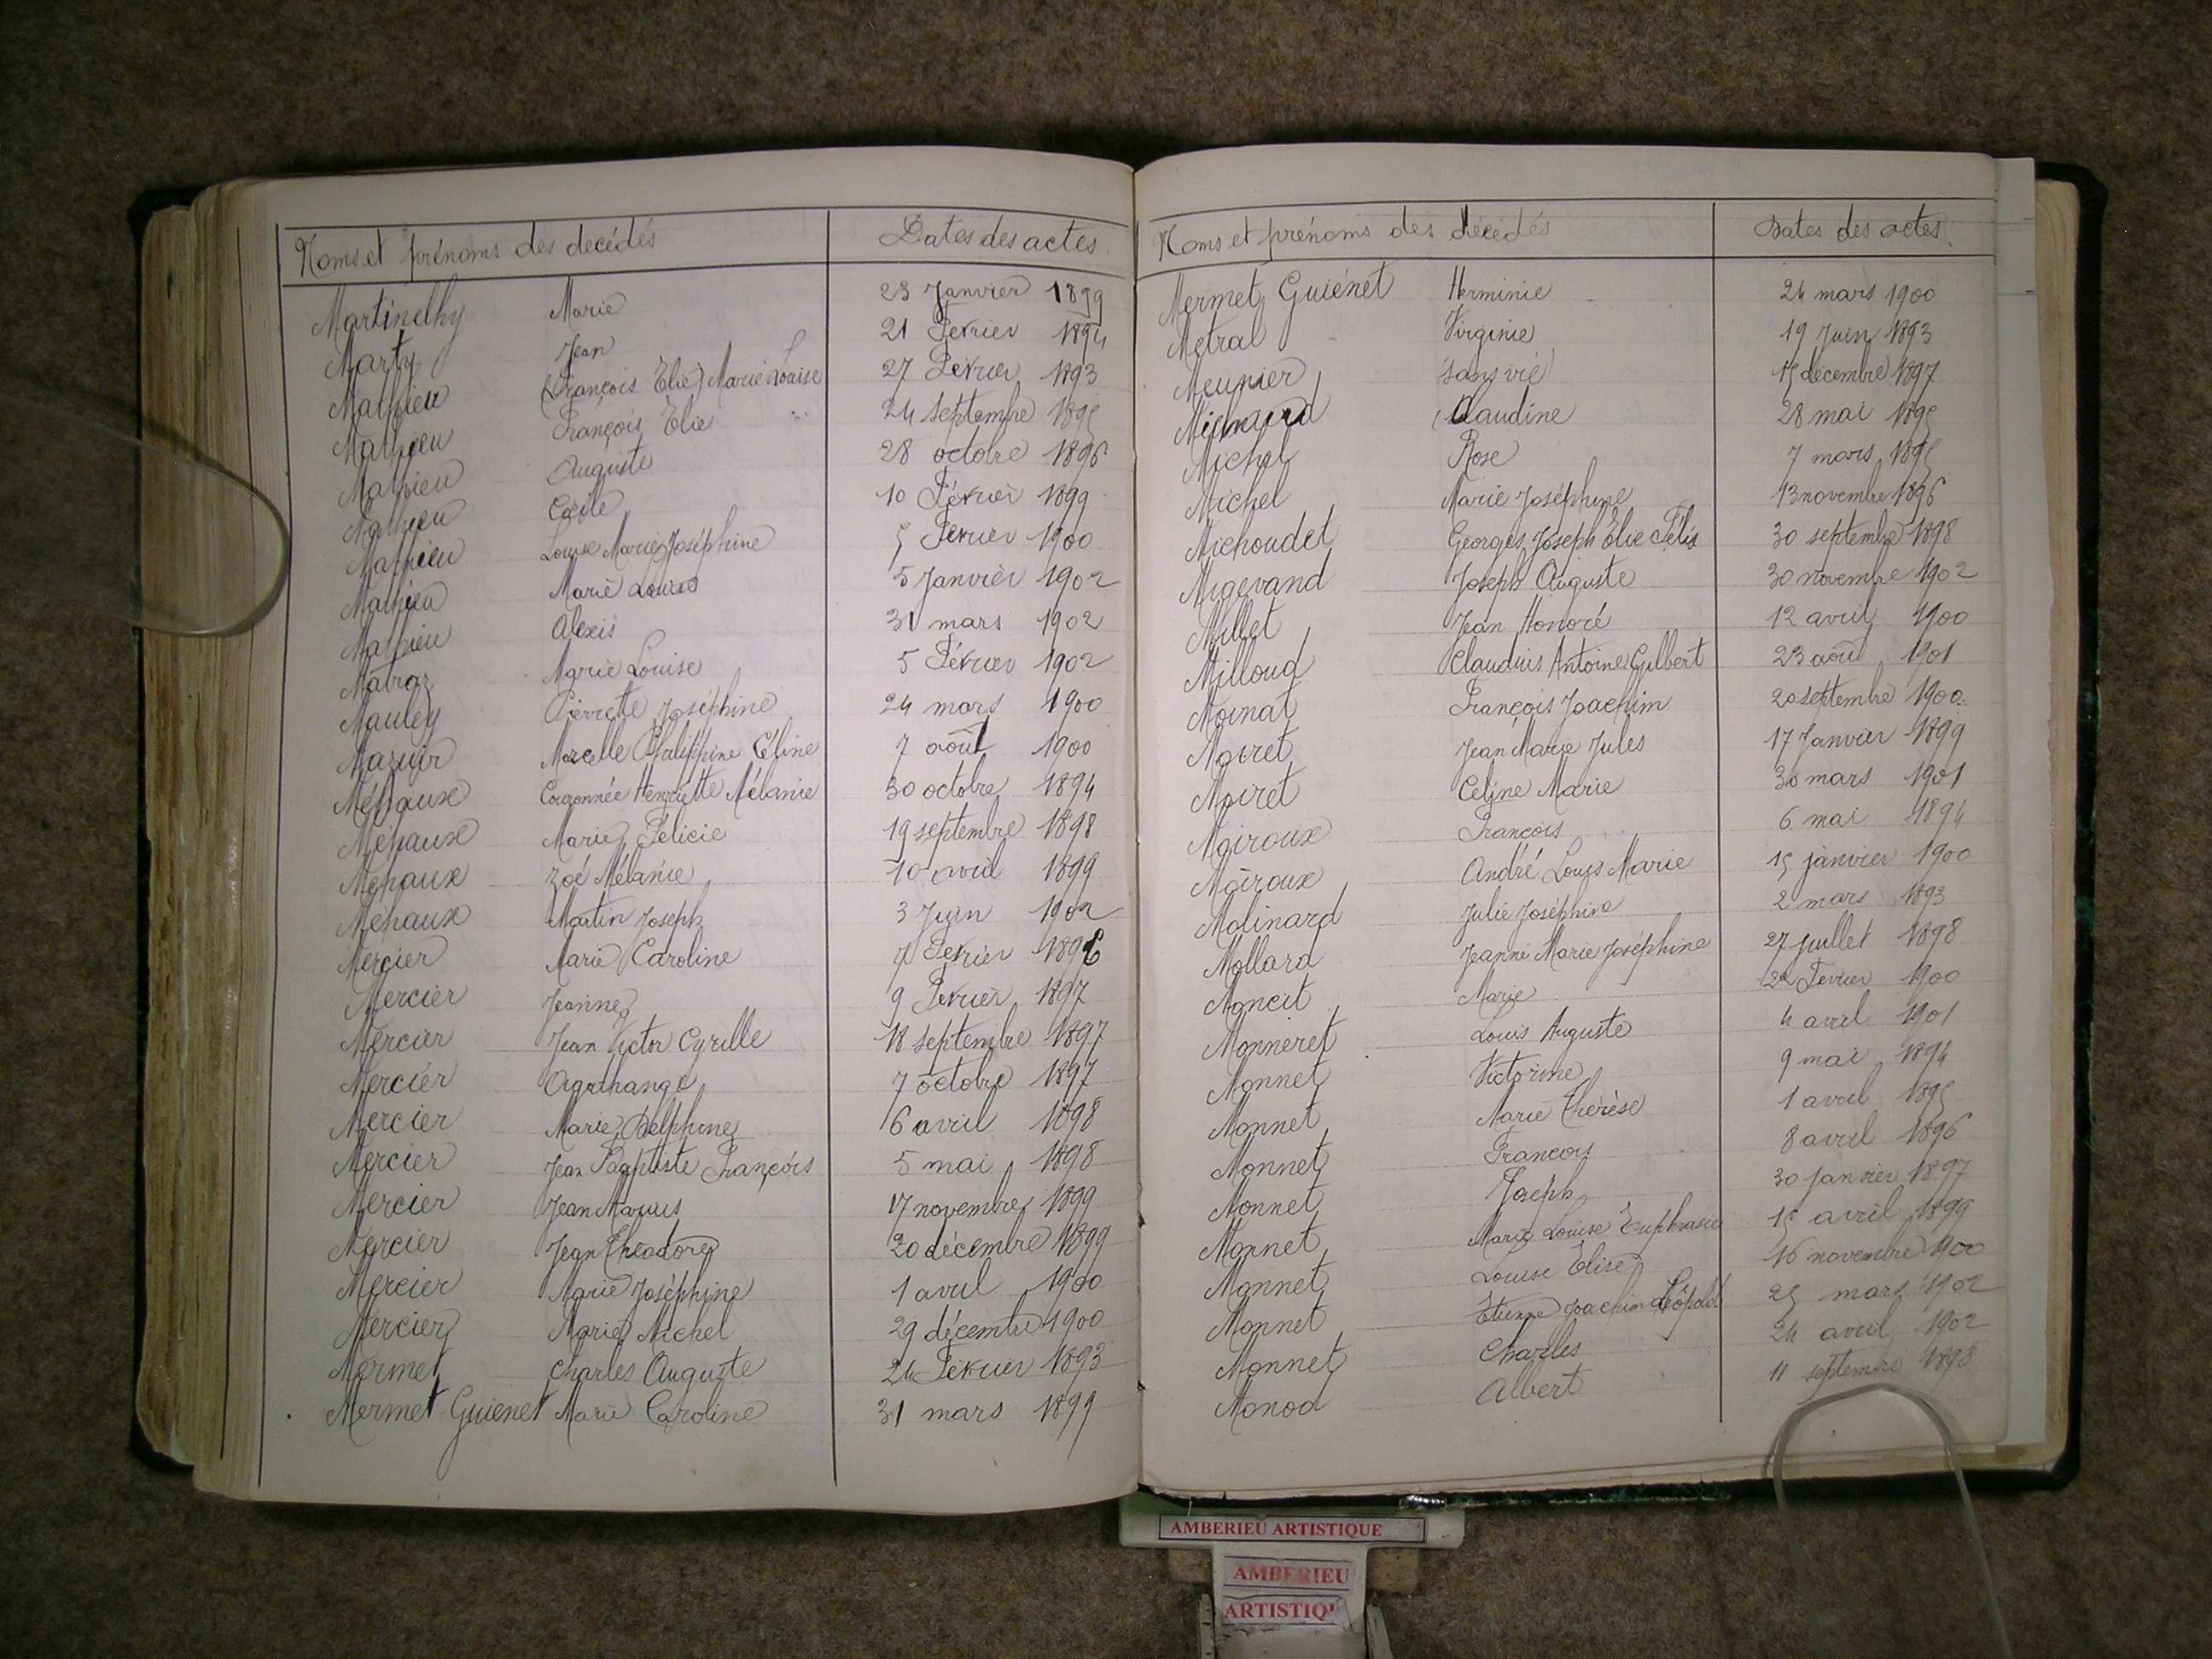 Noms et prénoms des décédés Dates des actes
Martinelhy Marie 23 Janvier 1899
Marty Jean 21 Février 1894
Mathieu (François Élie) Marie Louise 27 Février 1893
Mathieu François Élie 24 septembre 1895
Mathieu Auguste 28 octobre 1896
Mathieu Cécile 10 Février 1899
Mathieu Louise Marie Joséphine 5 Février 1900
Mathieu Marie Louise 5 Janvier 1902
Mathieu Alexis 31 mars 1902
Matraz Marie Louise 5 Février 1902
Mauley Pierrette Joséphine 24 mars 1900
Mazuir Marcelle Philippine Céline 7 août 1900
Méhaux Couronnée Henriette Mélanie 30 octobre 1894
Méhaux Marie Félicie 19 septembre 1898
Méhaux Zoé Mélanie 10 avril 1899
Méhaux Martin Joseph 3 Juin 1902
Mercier Marie Caroline Février
Mercier Jeanne 9 Février 1897
Mercier Jean Victor Cyrille 18 septembre 1897
Mercier Agathange 7 octobre 1897
Mercier Marie Delphine 6 avril 1898
Mercier Jean Baptiste François 5 mai 1898
Mercier Jean Marius 17 novembre 1899
Mercier Jean Théodore 20 décembre 1899
Mercier Marie Joséphine 1 avril 1900
Mercier Marie Michel 29 décembre 1900
Mermet Charles Auguste 24 Février 1893
Mermet Guienet Marie Caroline 31 mars 1899
Noms et prénoms des décédés Dates des actes.
Mermet Guiénet Herminie 24 mars 1900
Metral Virginie 19 Juin 1893
Meunier (sans vie) 15 décembre 1897
Michaud Claudine 28 mai 1895
Michel Rose 7 mars 1895
Michel Marie Joséphine 13 novembre 1896
Michoudet Georges Joseph Élie Félix 30 septembre 1898
Migevand Joseph Auguste 30 novembre 1902
Millet Jean Honoré 12 avril 1900
Milloud Claudius Antoine Gilbert 23 août 1901
Moinat François Joachim 20 septembre 1900
Moiret Jean Marie Jules 17 Janvier 1899
Moiret Céline Marie 30 mars 1901
Moiroux François 6 mai 1894
Moiroux André Louis Marie 15 janvier 1900
Molinard Julie Joséphine 2 mars 1893
Mollard Jeanne Marie Joséphine 27 juillet 1898
Moncit Marie 22 Février 1900
Monneret Louis Auguste 4 avril 1901
Monnet Victorine 9 mai 1894
Monnet Marie Thérèse 1 avril 1895
Monnet François 8 avril 1896
Monnet Joseph 30 janvier 1897
Monnet Marie Louise Euphrasie 15 avril 1899
Monnet Louise Élise 16 novembre 1900
Monnet Étienne Joachim Léopold 25 mars 1902
Monnet Charles 24 avril 1902
Monod Albert 11 septembre 1898
AMBERIEU ARTISTIQUE
AMBERIEU
ARTISTIQU